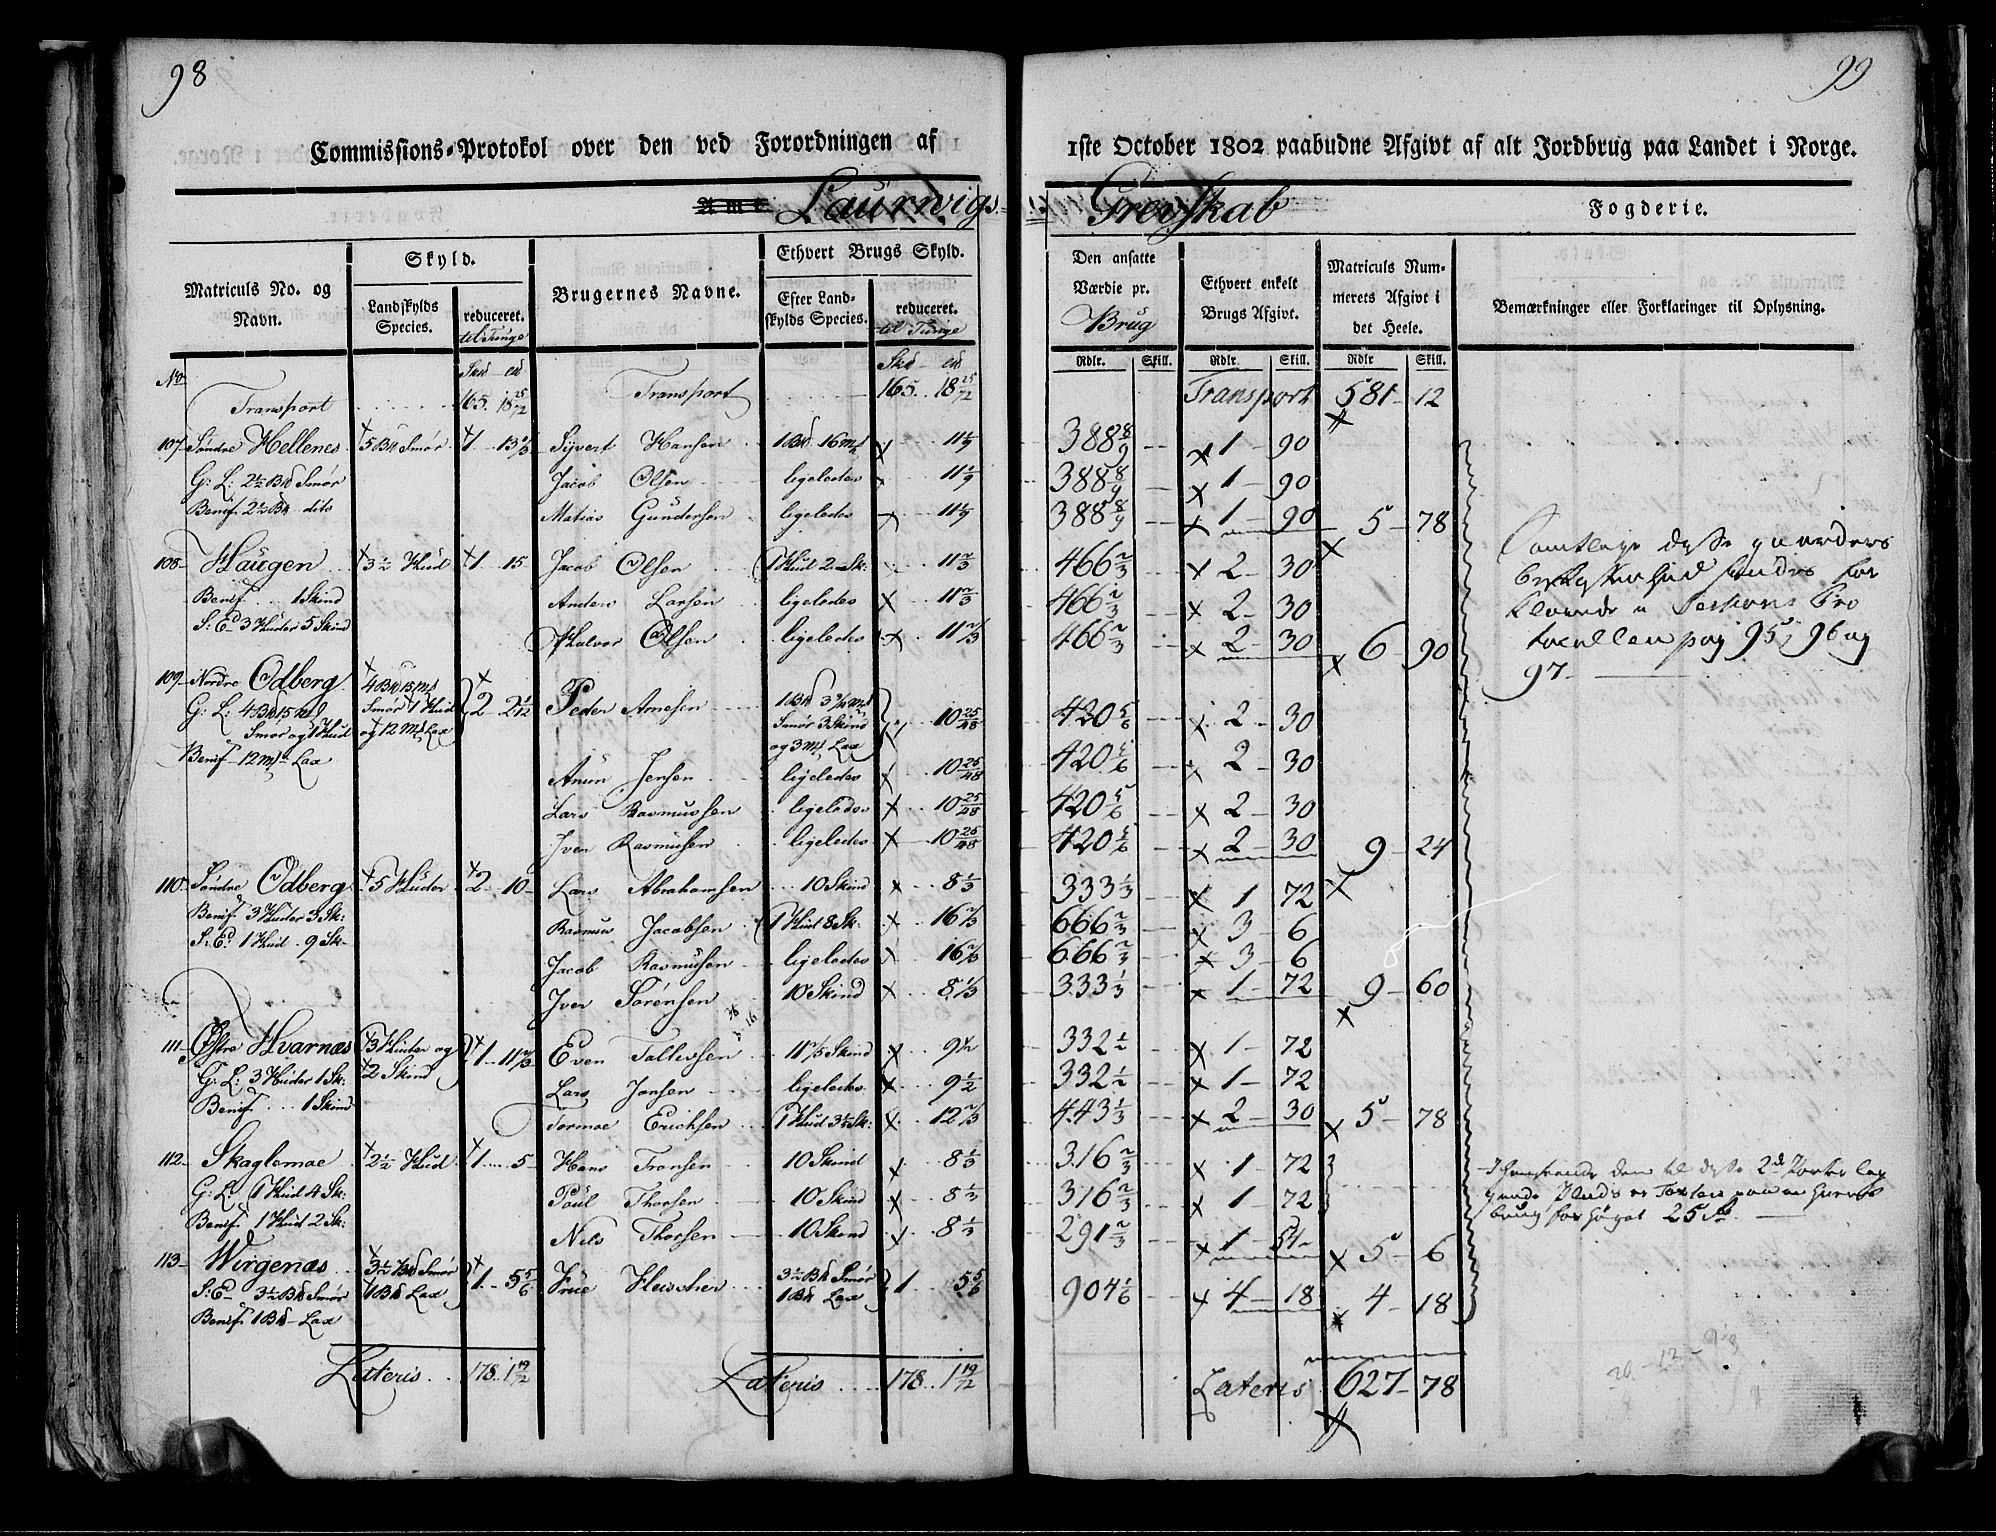 98
Commissions-Protokol over den ved Forordningen af
Amt Laurwigs
Matriculs No. og Navn.
Skyld.
Landskylds Species.
reduceret. til Tunge
Brugernes Navne.
Ethvert Brugs Skyld.
Efter Landskylds Species.
reduceret. til Tunge
No Skd — ed Skd — ed
Transport 165. 18 25/72 Transport 165.. 18 25/72
107 Søndre Hellenes 5 Bd Smør 1 — 13 1/3 Syvert Hansen 1 Bd 16 mk 11 1/9
G: L: 2 1/2 Bd Smør Jacob Olsen ligeledes 11 1/9
Benif. 2 1/2 Bd dito Matias Gundersen ligeledes 11 1/9
108 Haugen 3 1/2 Hud 1 — 15 Jacob Olsen 1 Hud 2 Sk: 11 2/3
Benif. 1 Skind Anders Larsen ligeledes 11 2/3
S: Ed 3 Huder 5 Skind Halvor Olsen ligeledes 11 2/3
109 Nordre Odberg 4 Bd 15 mk
G: L: 4 Bd 15 mk Smør 1 Hud 2 — 2 1/12 Peder Arnesen 1 Bd 3 3/4 mk 10 25/48
Smør og 1 Hud og 12 mk Lax Smør 3 Skind
Benif 12 mk Lax og 3 mk Lax
Anun Jensen ligeledes 10 25/48
Lars Rasmussen ligeledes 10 25/48
Iver Rasmusen ligeledes 10 25/48
110 Søndre Odberg 5 Huder 2 — 10 Lars Abrahamsen 10 Skind 8 1/3
Benif 3 Huder 3 Sk: Rasmus Jacobsen 1 Hud 8 Sk: 16 2/3
S: Ed. 1 Hud 9 Sk Jacob Rasmusen ligeledes 16 2/3
Iver Sørensen 10 Skind 8 1/3
111 Østre Hvarnæs 3 Huder og 1 — 11 2/3 Even Tallevsen 11 2/5 Skind 9 1/2
G: L: 3 Huder 1 Sk: 2 Skind Lars Jansen ligeledes 9 1/2
Benif 1 Skind Tormoe Erichsen 1 Hud 3 1/5 Sk: 12 2/3
112 Skaglemoe 2 1/2 Hud 1 — 5 Hans Fransen 10 Skind 8 1/3
G: L. 1 Hud 4 Sk: Poul Thorsen 10 Skind 8 1/3
Benif 1 Hud 2 Sk: Nils Thorsen 10 Skind 8 1/3
113 Wirgenæs 3 1/2 Bd Smør 1 — 5 5/6 Frue Fleischer 3 1/2 Bd Smør 1 5 5/6
S: Ed 3 1/2 Bd Smør 1 Bd Lax 1 Bd Lax
Benif. 1 Bd Lax
Lateris 178. 1 19/72 Lateris 178.. 1 19/72
99
1ste October 1802 paabudne Afgivt af alt Jordbrug paa Landet i Norge.
Grevskab Fogderie.
Den ansatte Værdie pr. Brug
Ethvert enkelt Brugs Afgivt.
Matriculs Nummerets Afgivt i det Heele.
Bemærkninger eller Forklaringer til Oplysning.
Rdlr. Skill. Rdlr Skill. Rdlr Skill.
Transport 581 — 12
388 8/9 1 — 90
388 8/9 1 — 90
388 8/9 1 — 90 5 — 78
466 2/3 2 — 30
466 2/3 2 — 30
466 2/3 2 — 30 6 — 90
Samtlige disse gaarders
beskaffenhed findes for
klarede i Sessions Pro
tocollen pag 95, 96 og
97.
420 5/6 2 — 30
420 5/6 2 — 30
420 5/6 2 — 30
420 5/6 2 — 30 9 — 24
333 1/3 1 72
666 2/3 3 — 6
666 2/3 3 — 6
333 1/3 1 — 72 9 — 60
332 1/2 1 — 72
332 1/2 1 — 72
443 1/3 2 — 30 5 — 78
316 2/3 1 — 72
316 2/3 1 — 72
291 2/3 1 — 54 5 — 6
904 1/6 4 — 18 4 — 18
til disse 2de
brug forhøyet 25
Lateris 627 — 78